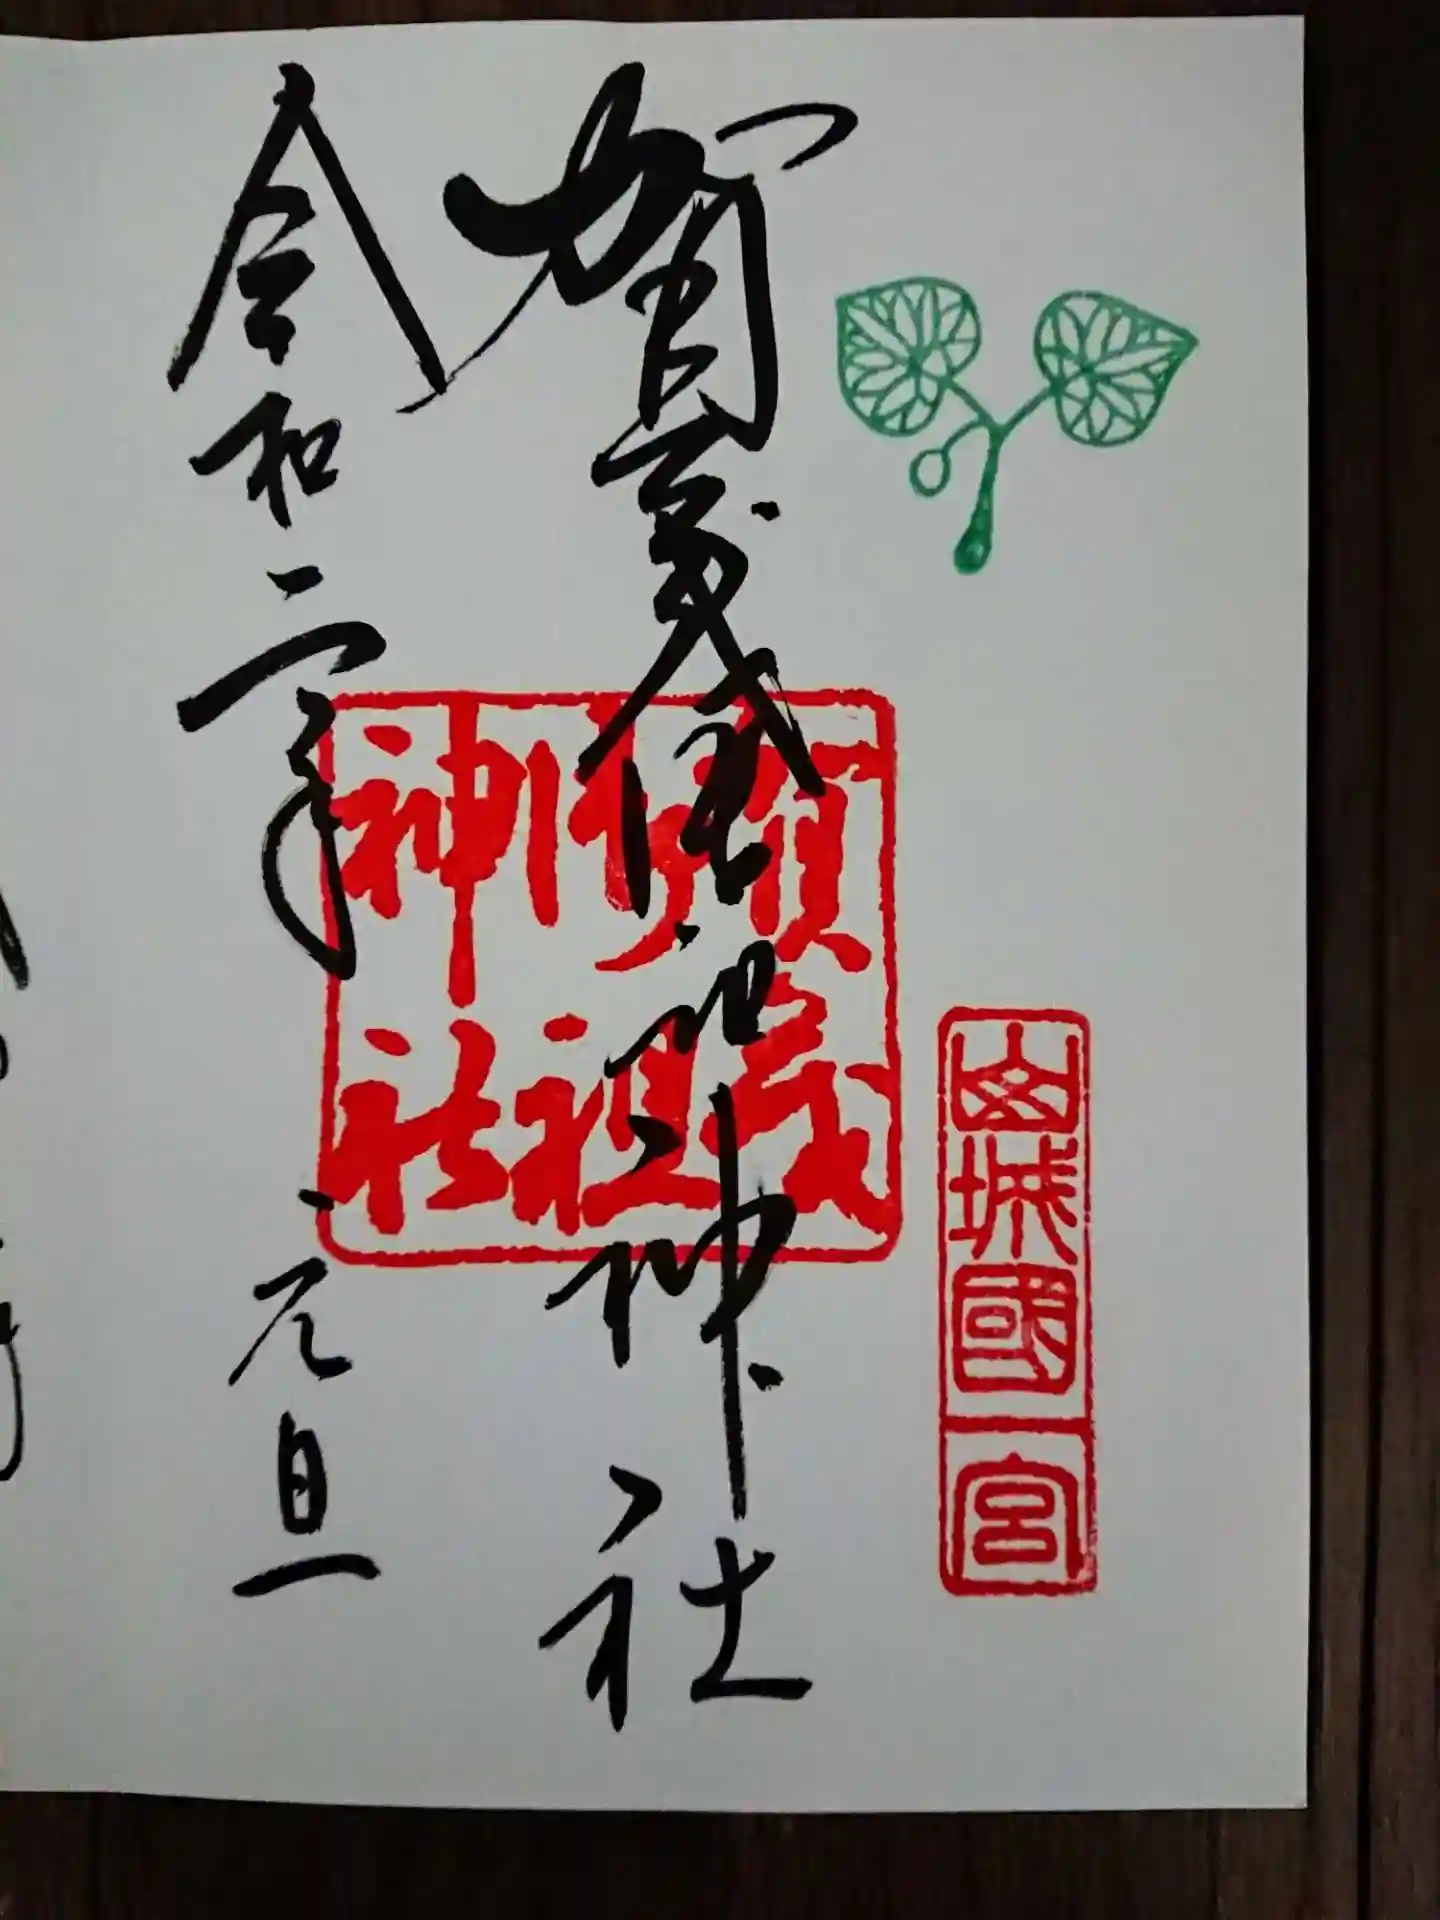 山城國
一宮
賀茂御祖神社
賀茂
御祖
神社
令和二年 元旦